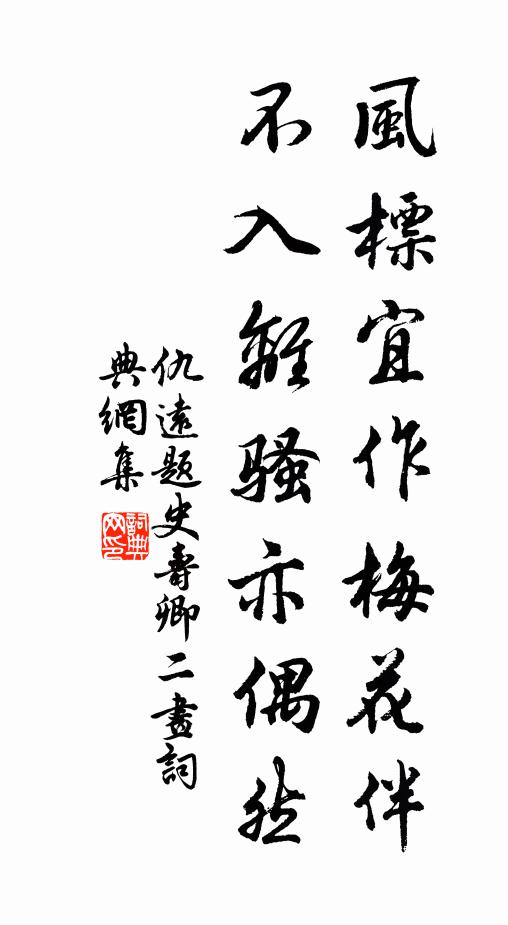 風標宜作梅花伴
不入離騷亦偶然
仇遠題史壽卿二畫詞
典網集
詞典
网印